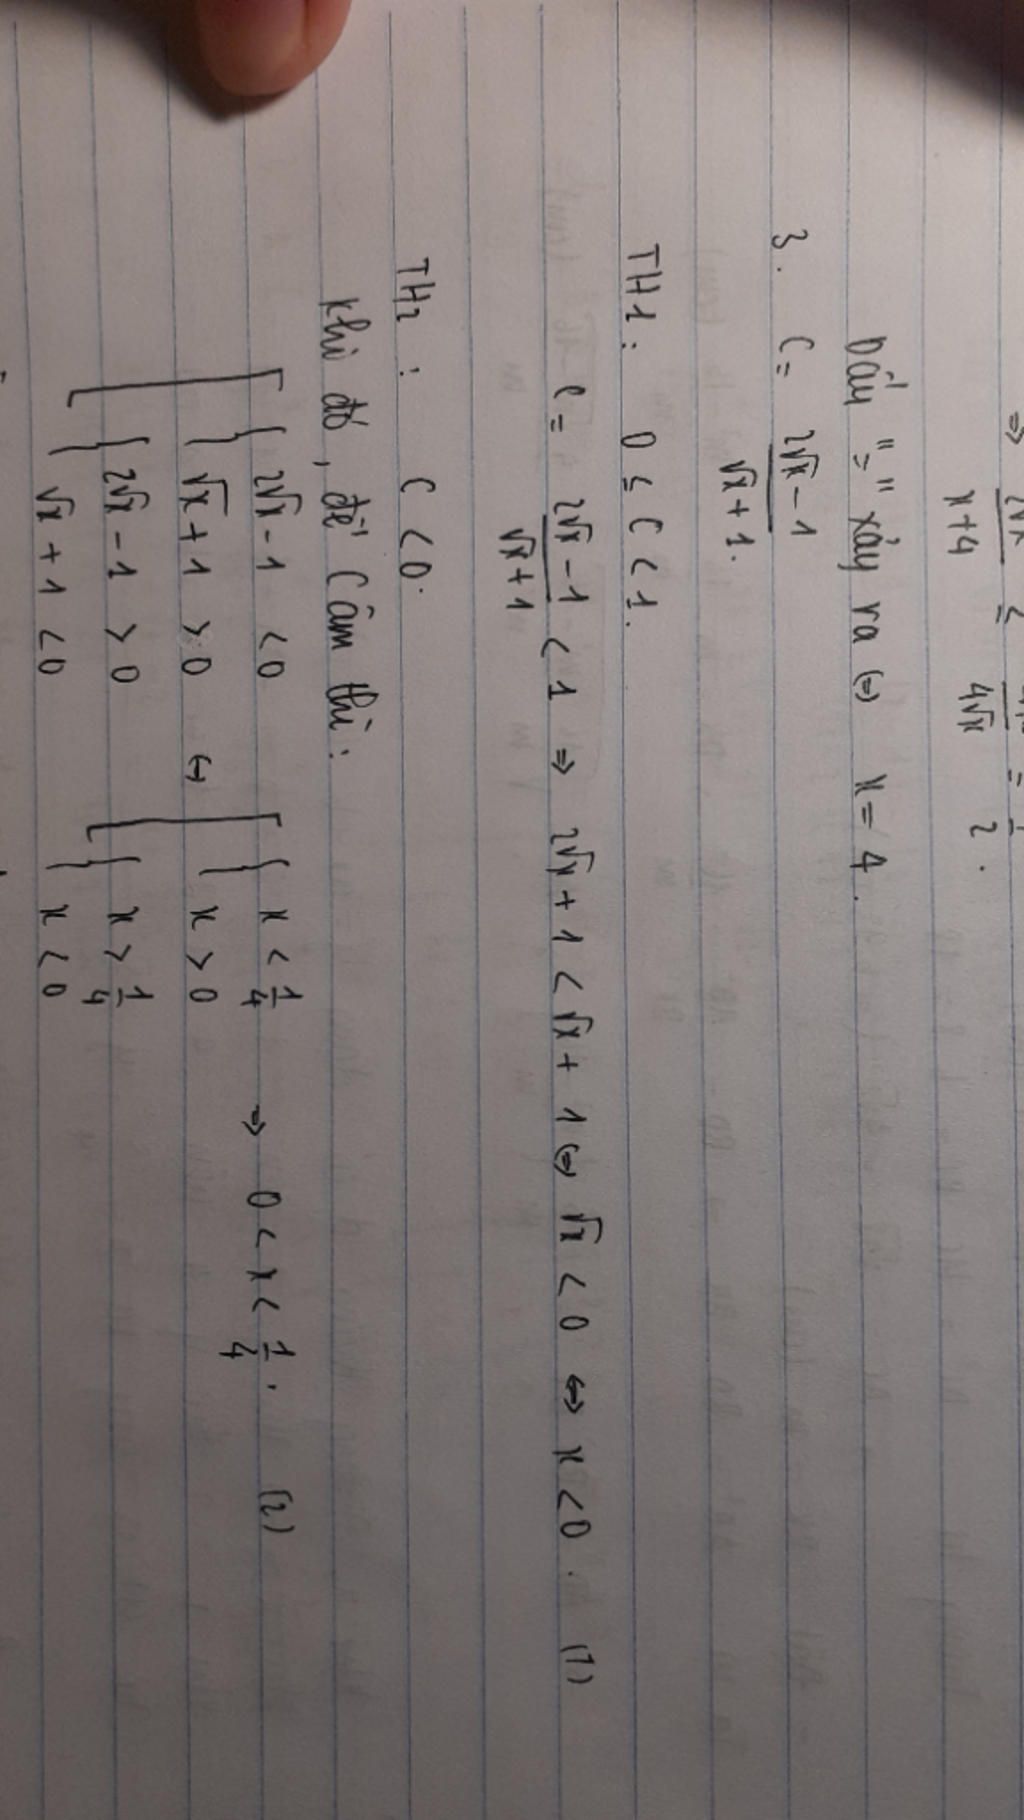 ⇒ 2√x / x+4 ≤ / 4√x = 1/2.
Dấu "=" xảy ra ⇔ x = 4.
3. C = (2√x - 1)/(√x + 1).
TH1: 0 ≤ C < 1.
C = (2√x - 1)/(√x + 1) < 1 ⇒ 2√x + 1 < √x + 1 ⇔ √x < 0 ⇔ x < 0. (1)
TH2: C < 0.
Khi đó, để C âm thì:
2√x - 1 < 0 x < 1/4 ⇒ 0 < x < 1/4. (2)
√x + 1 > 0 ⇔ x > 0
2√x - 1 > 0 x > 1/4
√x + 1 < 0 x < 0